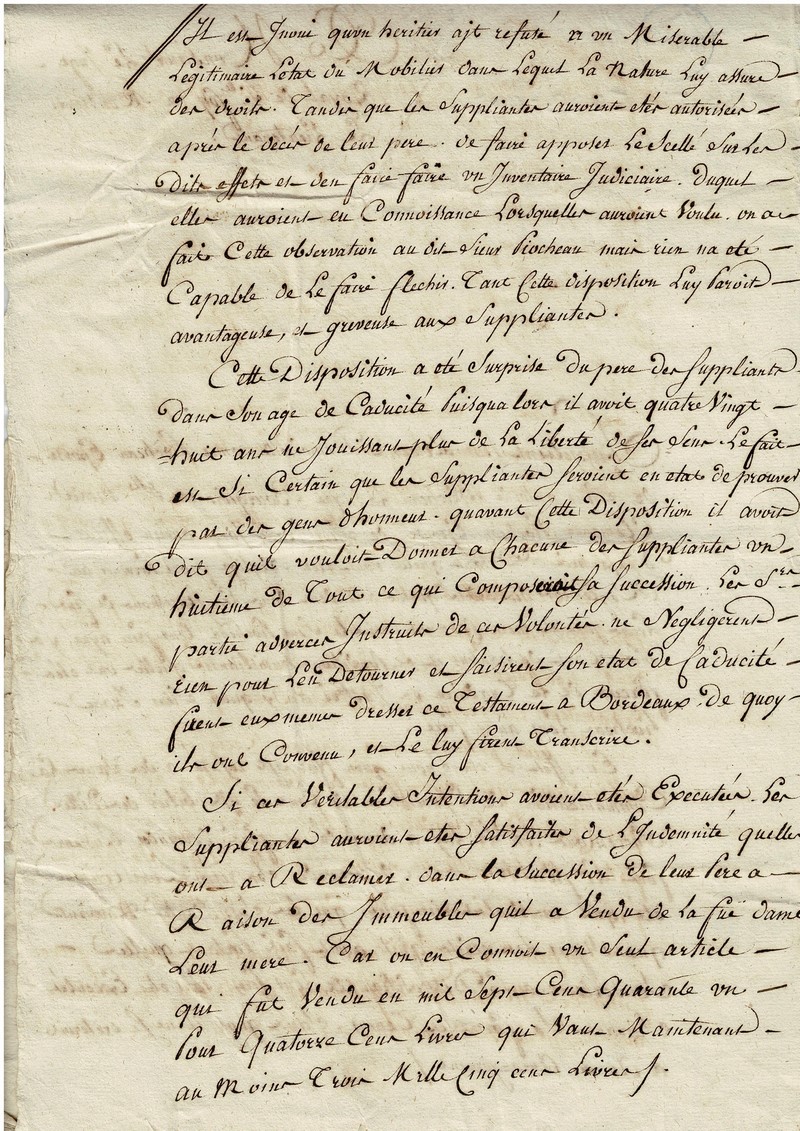 Il est Inoui qu'un heritier ajt refusé a un Miserable —
Légitimaire L'etat du Mobilier dans Lequel La Nature Luy assure
des droits. Tandis que les Suppliantes auroient etés autorisées —
aprés le decés de leur pere. de faire apposer Le Scellé Sur Les
dits effets et d'en faire faire un Inventaire Judiciaire. Duquel —
elles auroient eu Connoissance Lorsquelles auroient Voulu. on a
fait Cette observation au dit Sieur Piocheau mais rien na eté —
Capable de Le faire flechir. Tant Cette disposition Luy Paroit —
avantageuse, et greveuse aux Suppliantes.
Cette Disposition a eté Surprise Du pere des Suppliants
dans Son age de Caducité Puisqualors il avoit quatre Vingt —
=huit ans ne Jouissant plus de La Liberté de Ses Sens. Le fait
est Si Certain que les Suppliantes seroient en etat de prouver
par des gens d'honneur. quavant Cette Disposition il avoit
dit quil vouloit Donner a Chacune des Suppliantes un
huitieme de Tout ce qui Composeroit sa succession. Les Srs
partie adverces Instruits de ces Volontés. ne Negligerent —
rien pour L'en Detourner et Saisirent Son etat de Caducité —
firent eux memes dresser ce Testament a Bordeaux. de quoy
ils ont Convenu, et Le luy firent Transcrire.
Si ces Veritables Intentions avoient etés Executées. Les
Suppliantes auroient etés satisfaites de L'Indemnité quelles
ont — a Reclamer. dans la Succession de leur Pere a —
Raison des Immeubles quil a Vendu de La füe dame
Leur mere. Car on en Connoit un Seul article —
qui fut Vendu en mil Sept Cens Quarante un —
Pour Quatorze Cens Livres qui Vaut Maintenant —
au Moins Trois Melle Cinq cens Livres ∫.